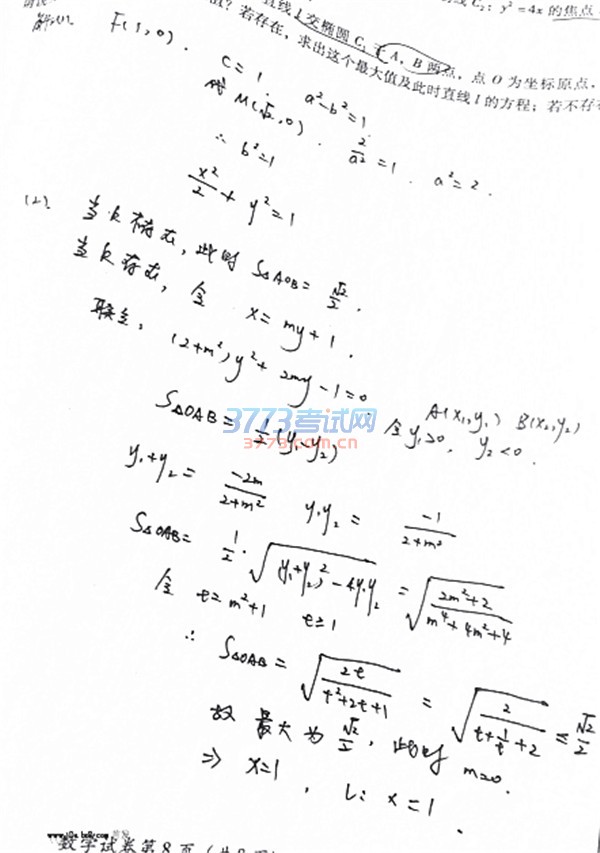 C₂: y²=4x 的焦点
直线 l 交椭圆 C₁ 于 A, B 两点, 点 O 为坐标原点,
值? 若存在, 求出这个最大值及此时直线 l 的方程; 若不存在
F(1,0).
C=1 a²-b²=1
M(√2,0). 2/a²=1. a²=2.
∴ b²=1
x²/2 + y²=1
(2).
当k不存在, 此时 S△AOB= √2/2.
当k存在, 令 x=my+1.
联立: (2+m²)y²+2my-1=0.
S△OAB= 1/2(y₁-y₂) 令y₁>0, y₂<0.
A(x₁,y₁) B(x₂,y₂)
3773考试网
3773.com.cn
y₁+y₂= -2m/2+m² y₁y₂= -1/2+m²
S△OAB= 1/2·√(y₁+y₂)²-4y₁y₂ = √2m²+2/m⁴+4m²+4
令 t=m²+1 t≥1
∴ S△OAB= √2t/t²+2t+1 = √2/t+1/t+2 ≤ √2/2
故最大为 √2/2, 此时 m=0.
⇒ x=1, L: x=1.
数学试卷第8页